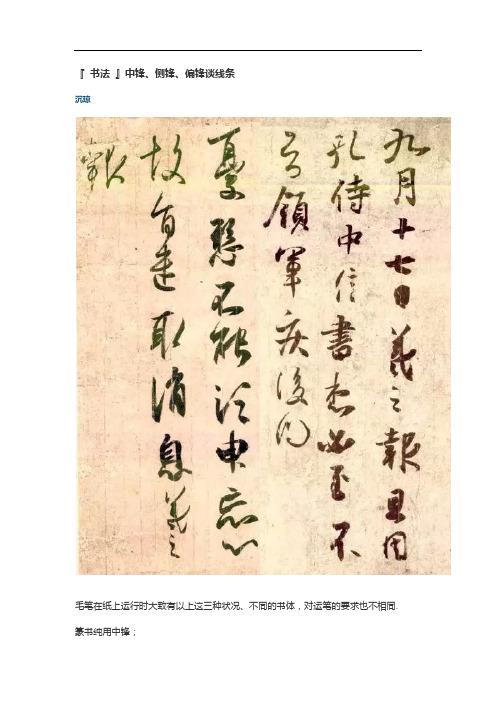 『 书法 』中锋、侧锋、偏锋谈线条
沉琼
九月十七日羲之報且因
孔侍中信書想必至不
知領軍疾後問
憂懸不能須臾忘心
故旨遣取消息羲之
報
毛笔在纸上运行时大致有以上这三种状况、不同的书体，对运笔的要求也不相同.
篆书纯用中锋；